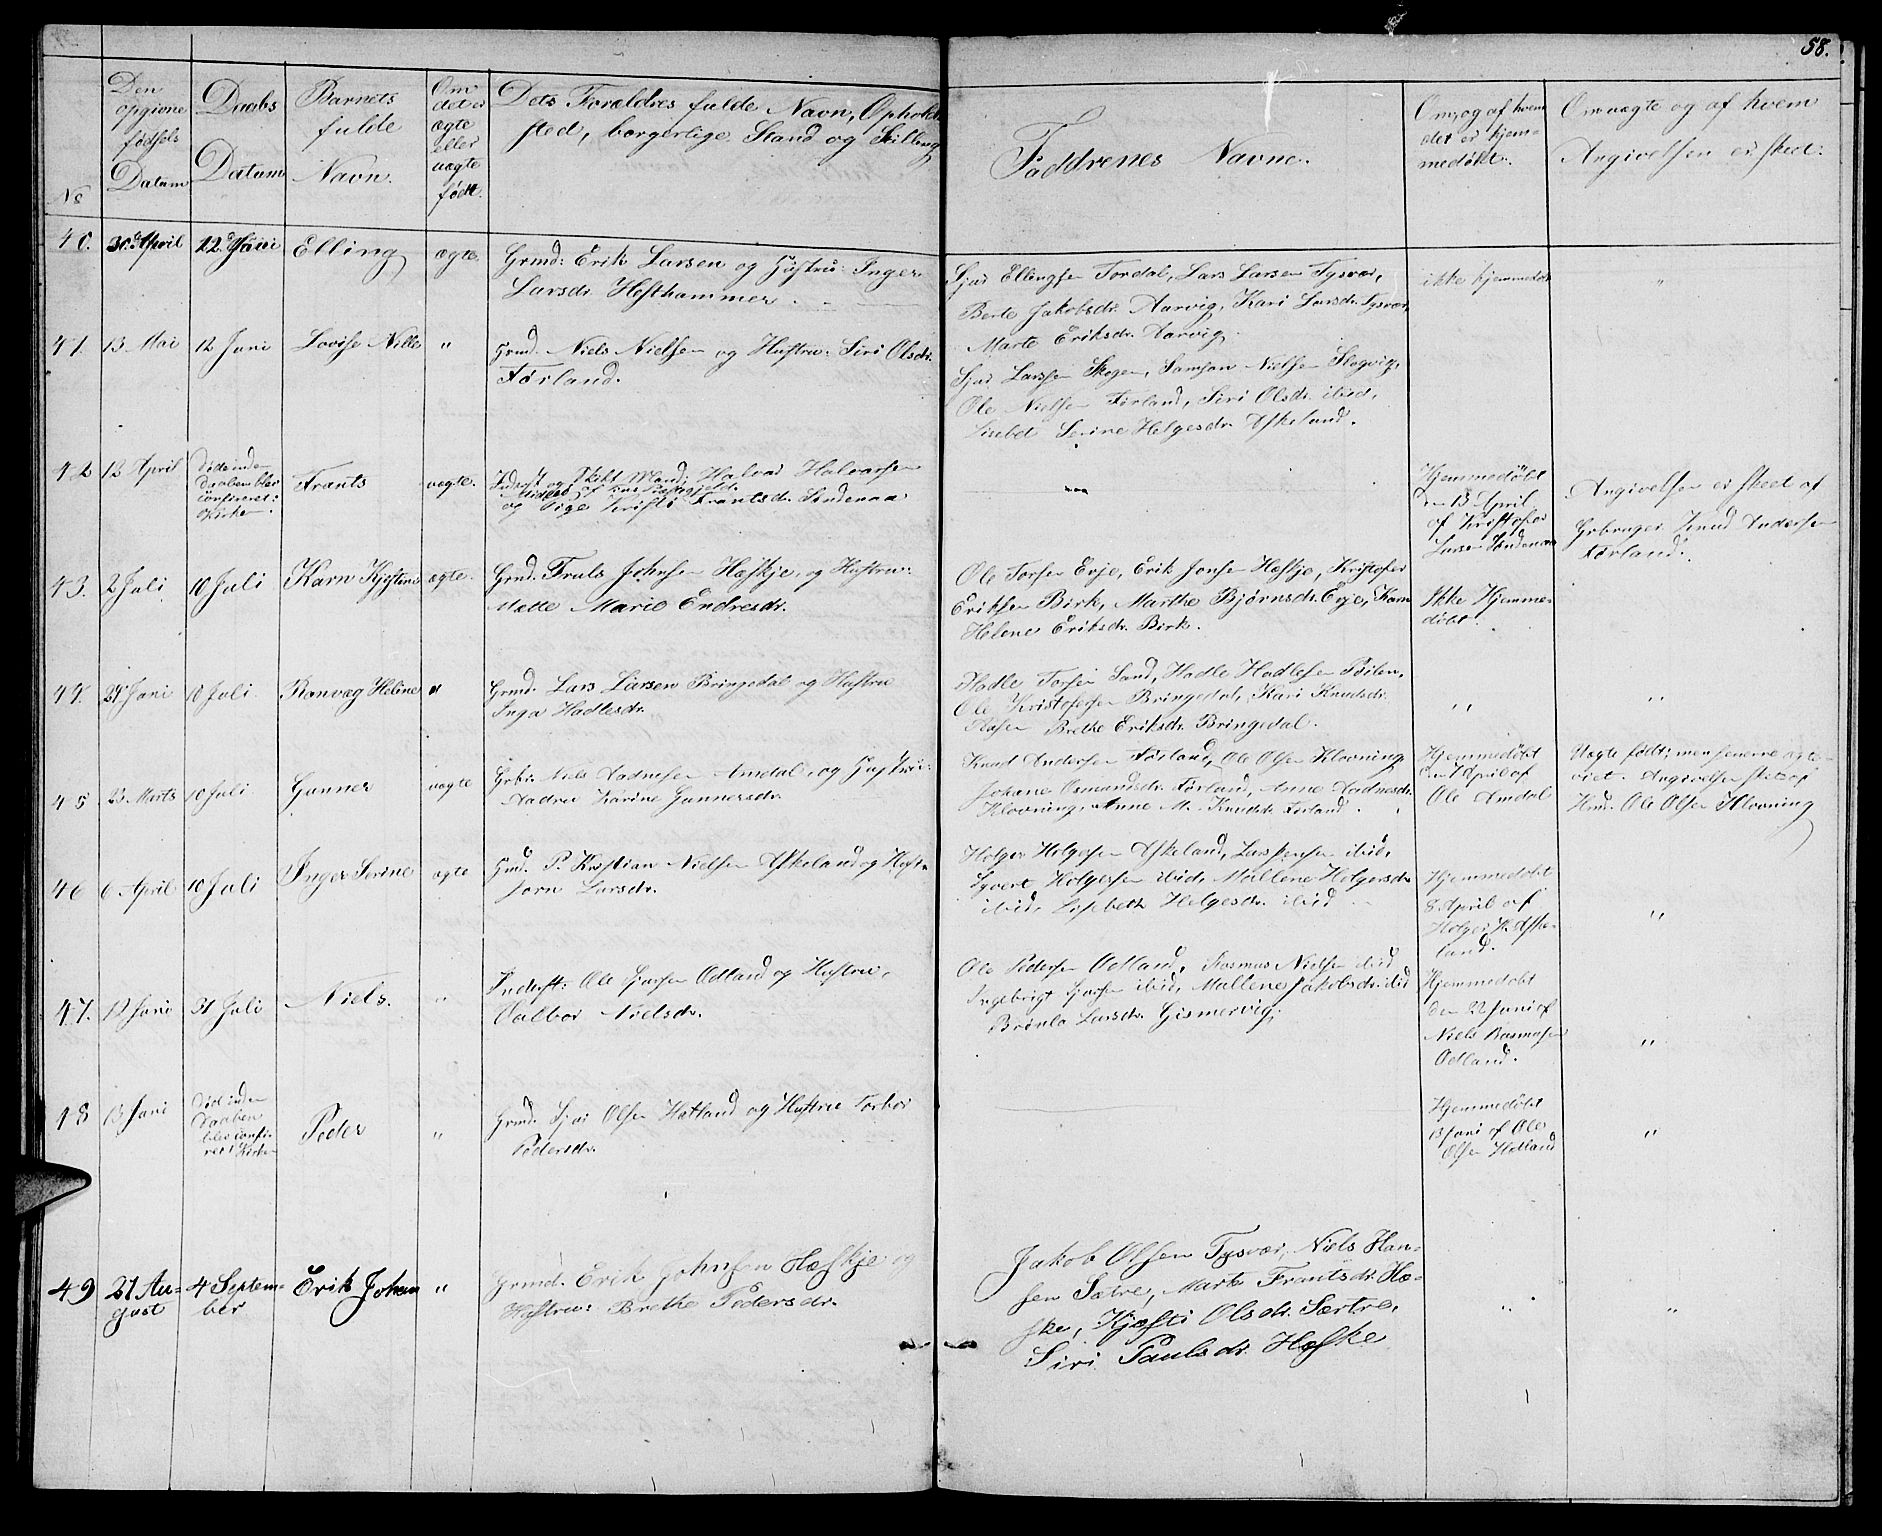 58.
No
Den opgivne fødsels Datum
Daabs Datum
Barnets fulde Navn.
Om det er ægte eller uægte født.
Dets Forældres fulde Navn, Opholdssted, borgerlige Stand og Stilling
Faddrenes Navne.
Om, og af hvem det er hjemmedøbt.
Om uægte og af hvem Angivelsen er skeet.
40. 30. April 12. Juni Elling ægte.
Grmd: Erik Larsen og Hustru: Inger
Larsdr. Hesthammer.
Sjur Ellingsen Førdal, Lars Larsen Tysvær,
Berte Jakobsdr. Aarvig, Kari Larsdr. Tysvær,
Marte Eriksdr. Aarvig.
ikke hjemmedøbt
"
41. 13 Mai 12 Juni Lovise Nille "
Grmd. Niels Nielsen og Hustru: Siri Olsdr.
Førland.
Sjur Larsen Skogen, Samson Nielsen Slogvig,
Ole Nielsen Førland, Siri Olsdr. ibid,
Lisebet Serine Helgesdr. Askeland.
42 12 April
Døde inden
Daaben blev
confireret i
Kirken.
Frants uægte.
og Pige Kristi Frantsdr. Søndenaa
Hjemmedøbt
den 13 April
af Kristofer
Larsen Søndenaa
Angivelsen er skeet af
Gbruger Knud Andersen
Førland.
43. 2 Juli 10 Juli Karn Kjistine ægte.
Grmd. Truls Johnsen Hæskje, og Hustru:
Mette Marie Endresdr.
Ole Torsen Erje, Erik Jonsen Hæskje, Kristofer
Eriksen Birk, Marthe Bjørnsdr. Erje, Karn
Helene Eriksdr. Birk.
Ikke Hjemme-
døbt.
44. 24 Juni 10 Juli. Ranvæg Heline "
Grmd. Lars Larsen Bringedal og Hustru
Inga Hadlesdr.
Hadle Torsen Sand, Hadle Hadlesen
Ole Kristofersen Bringedal, Kari Knudsdr.
Brethe Eriksdr. Bringedal.
" "
45 23 Marts 10 Juli. Gunner uægte
Gbr. Niels Aadnesen Amdal, og Hustru:
Karine Gunnersdr.
Knud Andersen Førland, Ole Olsen Klovning
Johane Osmundsdr. Førland, Anne Aadnesdr.
Klovning, Anne M. Knudsdr. Førland.
Hjemmedøbt
den 1 April af
Ole Amdal
Uægte født; men senerne ægte-
viet. Angivelsen skeet af
Hmd. Ole Olsen Klovning
46 6 April 10 Juli Inger Serine ægte
Gmd. P. Kristian Nielsen Askeland og Hustr.
Jorn Larsdr.
Holger Holgersen Askeland, Lars Jensen ibid,
Syvert Holgersen ibid, Mallene Holgersdr.
ibid, Lisebeth Helgesdr. ibid
Hjemmedøbt
8. April af
Holger H. Aske-
land.
"
47. 12 Juni 31 Juli Niels. "
Inderst: Ole Sjursen Odland og Hustru,
Valbor Nielsdr.
Ole Pedersen Odland, Rasmus Nielsen ibid
Ingebrigt Sjursen ibid, Mallene Jakobsdr. ibid
Brønla Larsdr. Gismervig.
Hjemmedøbt
den 22 Juni af
Niels Rasmusen
Odland.
"
48 13 Juni
Død inden
Daaben
blev confi-
reet i Kirken
Peder "
Grmd. Sjur Olsen Hetland og Hustru Torbor
Pedersdr.
Hjemmedøbt
13 Juni af Ole
Olsen Hetland
"
49 27 Au-
gust
4 Septem-
ber
Erik Johan "
Grmd. Erik Johnsen Hæskje og
Hustru: Brethe Pedersdr.
Jakob Olsen Tysvær, Niels Han-
sen Sætre, Marte Frantsdr. Hæ-
ske, Kjæsti Olsdr. Særtre,
Siri Paulsdr. Hæske
" "